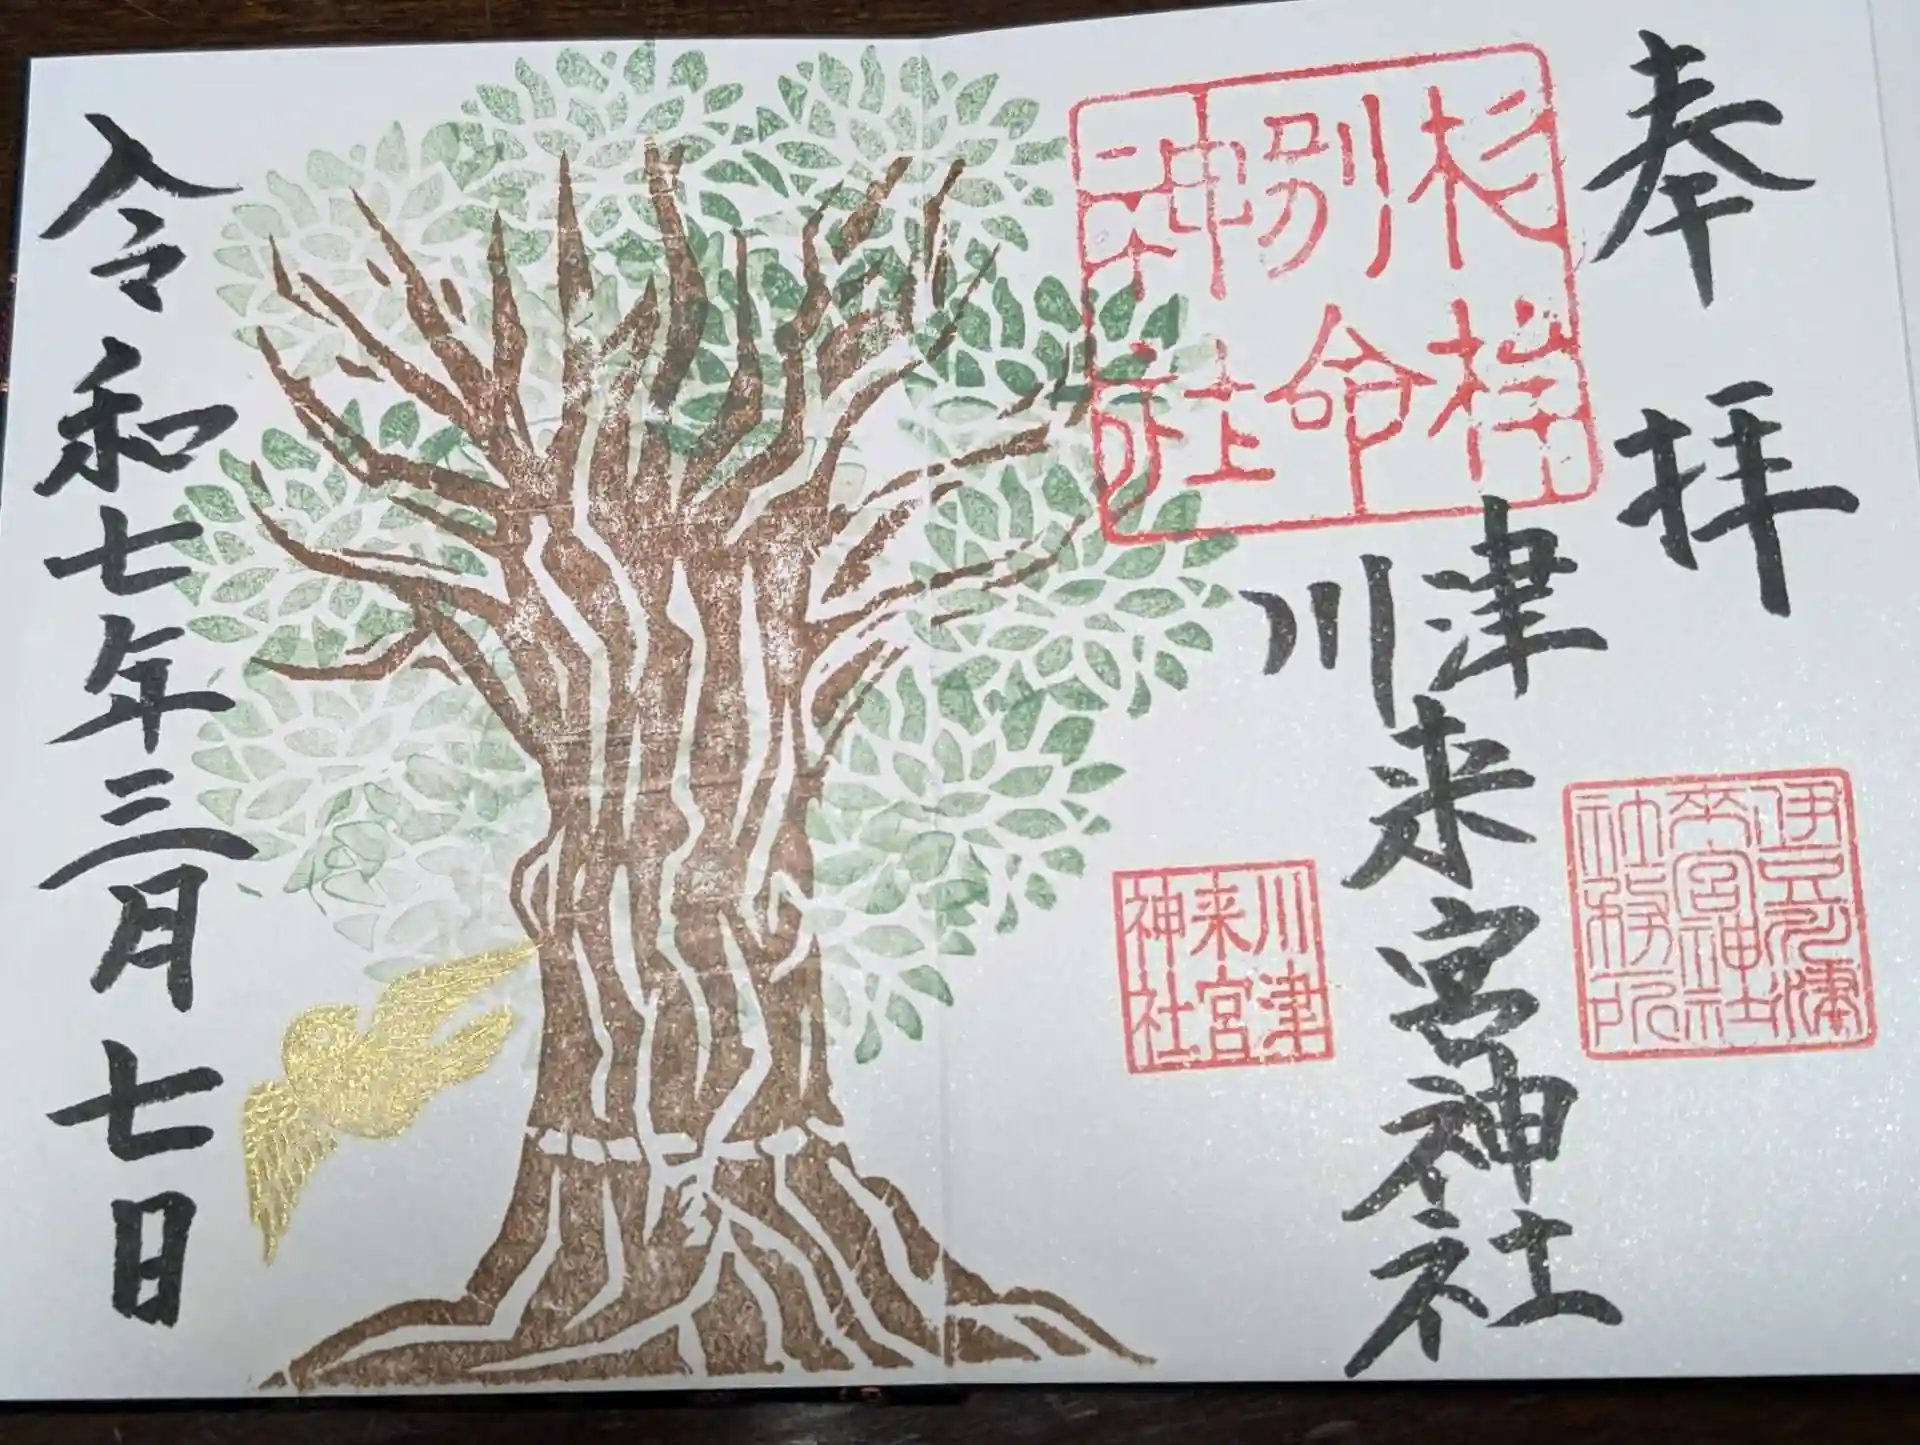 奉拝
杉桙
別命
神社
川津来宮神社
伊豆
来宮神社
社務所
川津
来宮
神社
令和七年三月七日